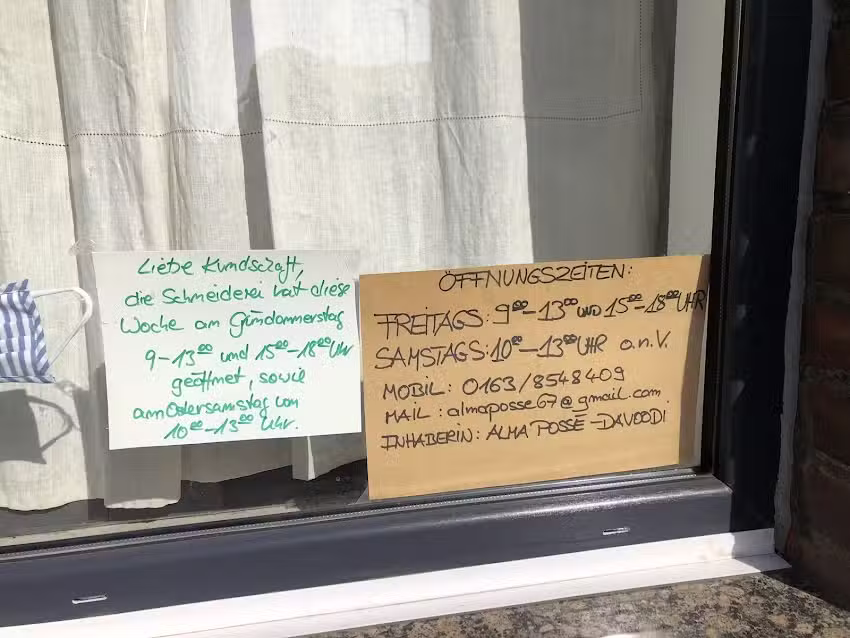 Liebe Kundschaft,
die Schneiderei hat diese
Woche am Gründonnerstag
9-13⁰⁰ und 15⁰⁰-18⁰⁰ Uhr
geöffnet, sowie
am Ostersamstag von
10⁰⁰-13⁰⁰ Uhr.
ÖFFNUNGSZEITEN:
FREITAGS: 9⁰⁰-13⁰⁰ UND 15⁰⁰-18⁰⁰ UHR
SAMSTAGS: 10⁰⁰-13⁰⁰ UHR a.n.V.
MOBIL: 0163/8548409
MAIL: almaposse67@gmail.com
INHABERIN: ALMA POSSÉ-DAVOODI